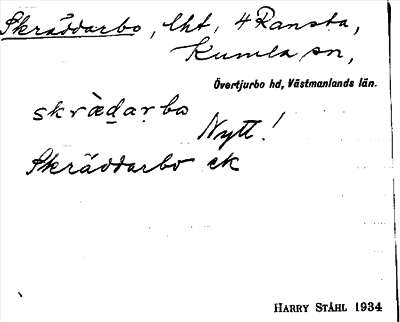 Skräddarbo, lht, 4 Ransta,
Kumla sn,
Övertjurbo hd, Västmanlands län.
skrædarbo
Nytt!
Skräddarbo ek
HARRY STÅHL 1934